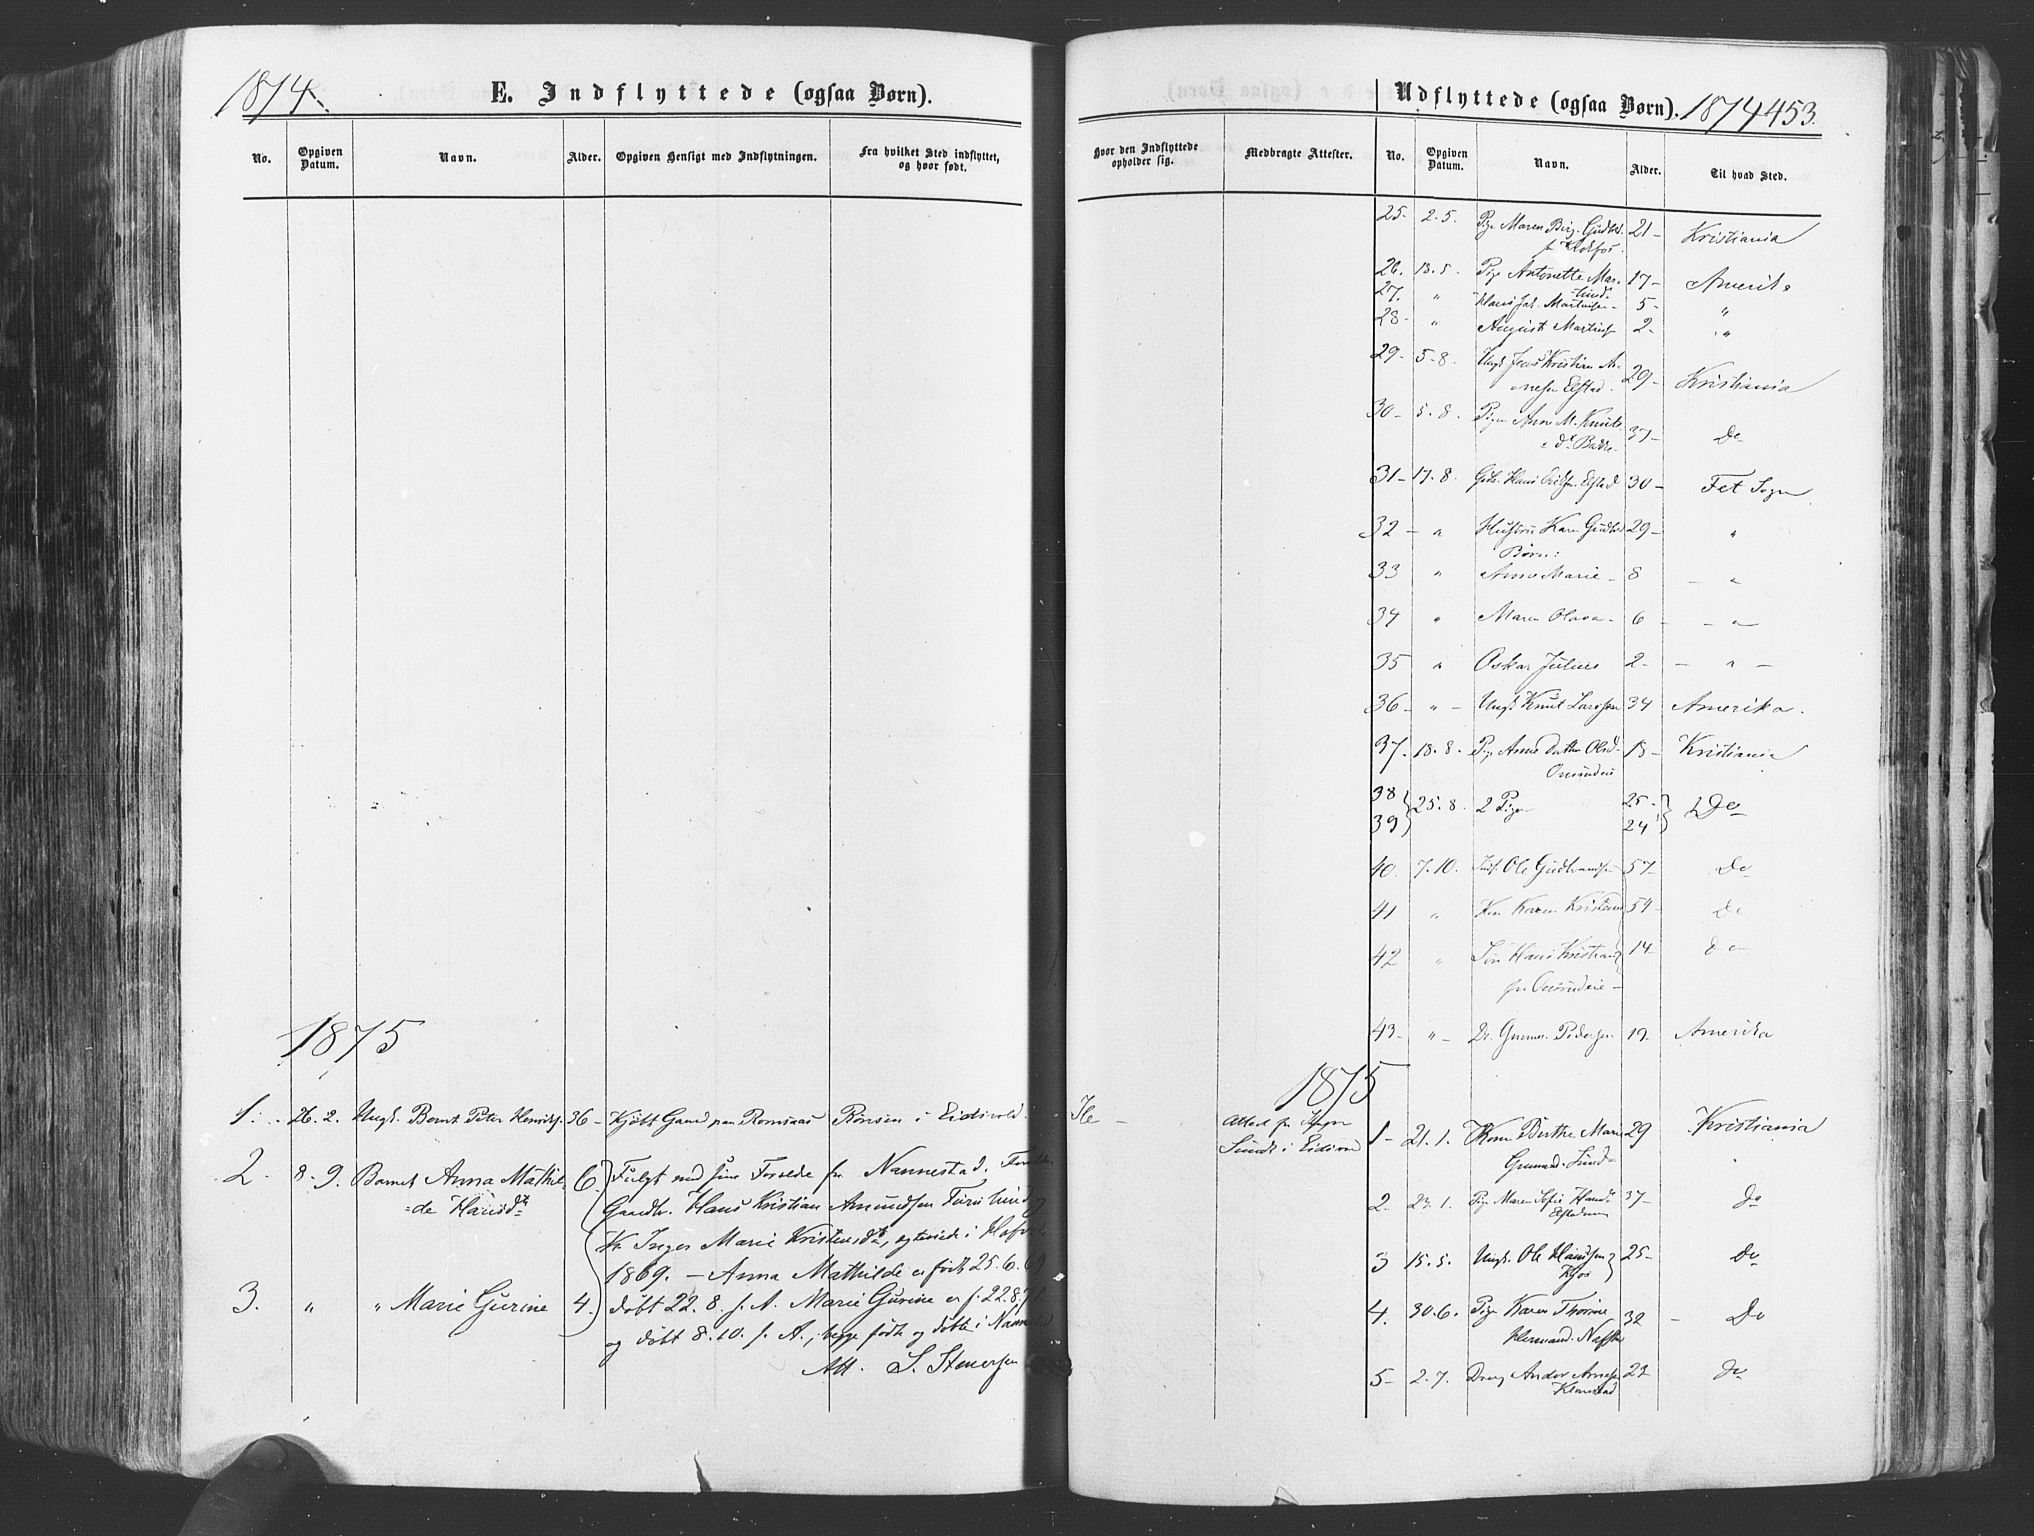 1874.
E. Indflyttede (ogsaa Børn).
No.
Opgiven Datum.
Navn.
Alder.
Opgiven Hensigt med Indflytningen.
Fra hvilket Sted indflyttet, og hvor født.
1875
1. 26. 2. Ungk. Bernt Peter Henriks. 36 Kjøbt Gaard paa Romsaas Rønsen i Eidsvold.
2. 8. 9. Barnet Anna Mathil- 6. Fulgt med sine Forældre fra Nannestad.
de Hansd. Gaardbr. Hans Kristian Amundsen
K. Inger Marie Kristensd., egteviede i
1869. — Anna Mathilde er født 25. 6. 69
3. " " Marie Gurine 4. døbt 22. 8. s. A. Marie Gurine er f. 22.8.71
og døbt 8. 10. s. A., begge født og døbt i
Att. S. Stenersen
Udflyttede (ogsaa Børn). 1874 453.
Hvor den Indflyttede opholder sig.
Medbragte Attester.
No.
Opgiven Datum.
Navn.
Alder.
Til hvad Sted.
25. 2. 5. Pige Maren Birg. Gudbr. 21 Kristiania
26. 13. 5. Pige Antonette Mar- 17 Amerika
tinsd.
27. " Hans Jak. Martinsen 5 "
28 " August Martins. 2 "
29 5. 8. Ungk. Jens Kristian Ar- 29 Kristiania
nesen Elstad
30 5. 8. Pigen Anne M. Knuts- 37 Do
d. Bakke
31 17. 8. Gbr. Hans Elstad 30 Fet Sogn
32 " Hustru Karen Gudbr. 29 "
Børn:
33 " Anne Marie 8 "
34 " Maren Olava 6 "
35 " Oskar Julius 2 "
36 " Ungk. Knut Larssen 34 Amerika.
37. 18. 8. Pige Anne Dorthea Olsd. 18 Kristiania
38 25. 8. 2 Piger 25 Do
39 24
40. 7. 10. Inds. Ole Gudbrandsen 57 Do
41 " Kon Karen Kristens 54 Do
42 " Søn Hans Kristian 14 Do
43 " Gunner Pedersen 19 Amerika
1875
Ile
Attest fra
Sunde i Eidsvold
1 21. 1. Kone Berthe Marie 29 Kristiania
Sund
2. 23. 1. Pige Maren Sofie Hansd. 37 Do
3 15. 5. Ungk. Ole Hansen 25 Do
Kjos
4. 30. 6. Pige Karen Thorine 32 Do
5 2. 7. Dreng Anders Arnesen 22 Do